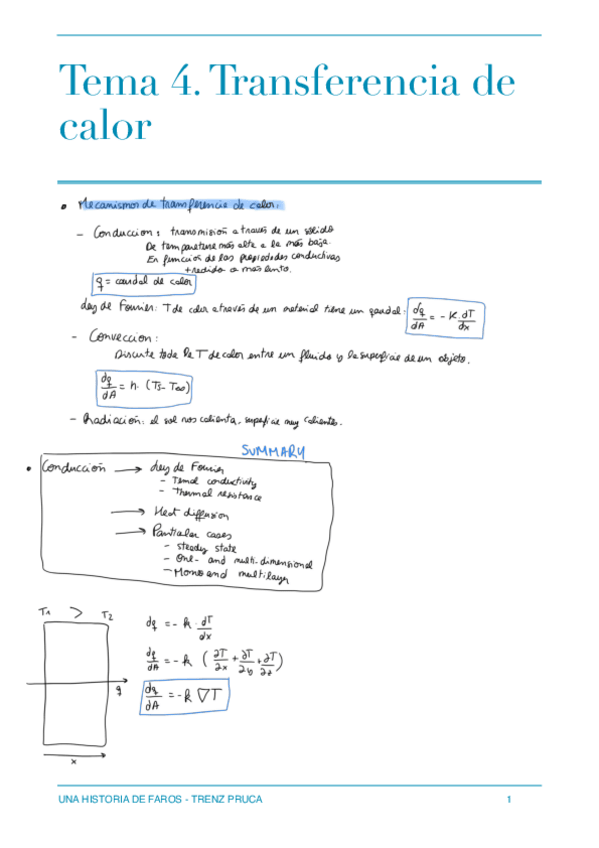 Tema 4. Transferencia de
calor
• Mecanismos de transferencia de calor:
- Conduccion: transmisión a traves de un solido
De temperatura más alta a la más baja.
En función de las propiedades conductivas
+ rapido o mas lento.
q = caudal de calor
Ley de Fourier: T de calor a través de un material tiene un caudal: dq/dA = - K · dT/dx
- Conveccion:
Discute toda la T de calor entre un fluido y la superficie de un objeto.
dq/dA = h · (Ts - T∞)
- Radiación: el sol nos calienta, superficie muy calientes.
SUMMARY
• Conducción → Ley de Fourier
- Termal conductivity
- Thermal resistance
→ Heat diffusion
→ Particular cases
- steady state
- One- and multi-dimensional
- Mono and multilayer
T1 > T2
dq = - k · dT/dx
dq/dA = - k (∂T/∂x + ∂T/∂y + ∂T/∂z)
q
dq/dA = - k ∇T
x
UNA HISTORIA DE FAROS - TRENZ PRUCA 1